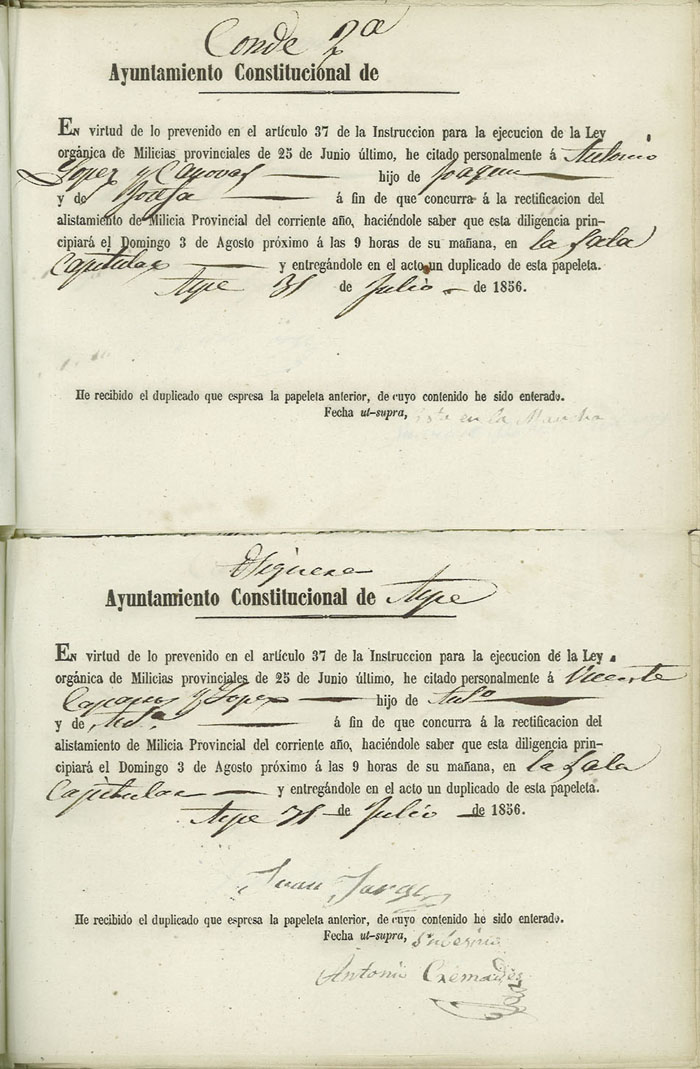 Conde 2ª
Ayuntamiento Constitucional de
En virtud de lo prevenido en el artículo 37 de la Instruccion para la ejecucion de la Ley
orgánica de Milicias provinciales de 25 de Junio último, he citado personalmente á Antonio
Lopez y Canovas hijo de Joaquin
y de Josefa á fin de que concurra á la rectificacion del
alistamiento de Milicia Provincial del corriente año, haciéndole saber que esta diligencia prin-
cipiará el Domingo 3 de Agosto próximo á las 9 horas de su mañana, en la Sala
Capitular y entregándole en el acto un duplicado de esta papeleta.
Aspe 31 de Julio de 1856.
He recibido el duplicado que espresa la papeleta anterior, de cuyo contenido he sido enterado.
Fecha ut-supra, en la Mancha
Higuera
Ayuntamiento Constitucional de Aspe
En virtud de lo prevenido en el artículo 37 de la Instruccion para la ejecucion de la Ley
orgánica de Milicias provinciales de 25 de Junio último, he citado personalmente á Vicente
y Lopez hijo de Antº
y de á fin de que concurra á la rectificacion del
alistamiento de Milicia Provincial del corriente año, haciéndole saber que esta diligencia prin-
cipiará el Domingo 3 de Agosto próximo á las 9 horas de su mañana, en la Sala
Capitular y entregándole en el acto un duplicado de esta papeleta.
Aspe 31 de Julio de 1856.
Juan
He recibido el duplicado que espresa la papeleta anterior, de cuyo contenido he sido enterado.
Fecha ut-supra,
Antonio Cremades